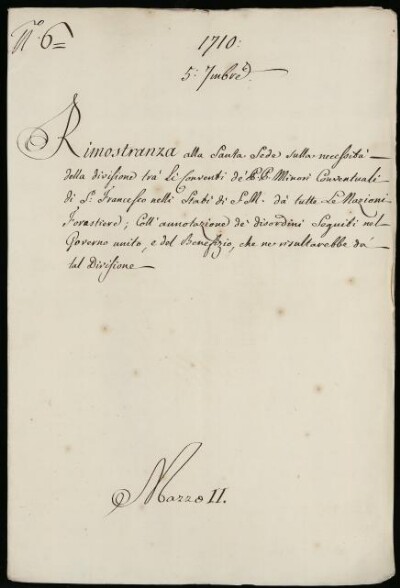 N.º 6=
1710:
5: 7mbrè
Rimostranza alla Santa Sede sulla necessità
della divisione trà li Conventi de' P.P. Minori Conventuali
di S: Francesco nelli Stati di S.M. da tutte Le Nazioni
Forastiere; Coll' annotazione de' disordini Seguiti nel
Governo unito, e del Benefizio, che ne risultarebbe da
tal Divisione
Mazzo II.